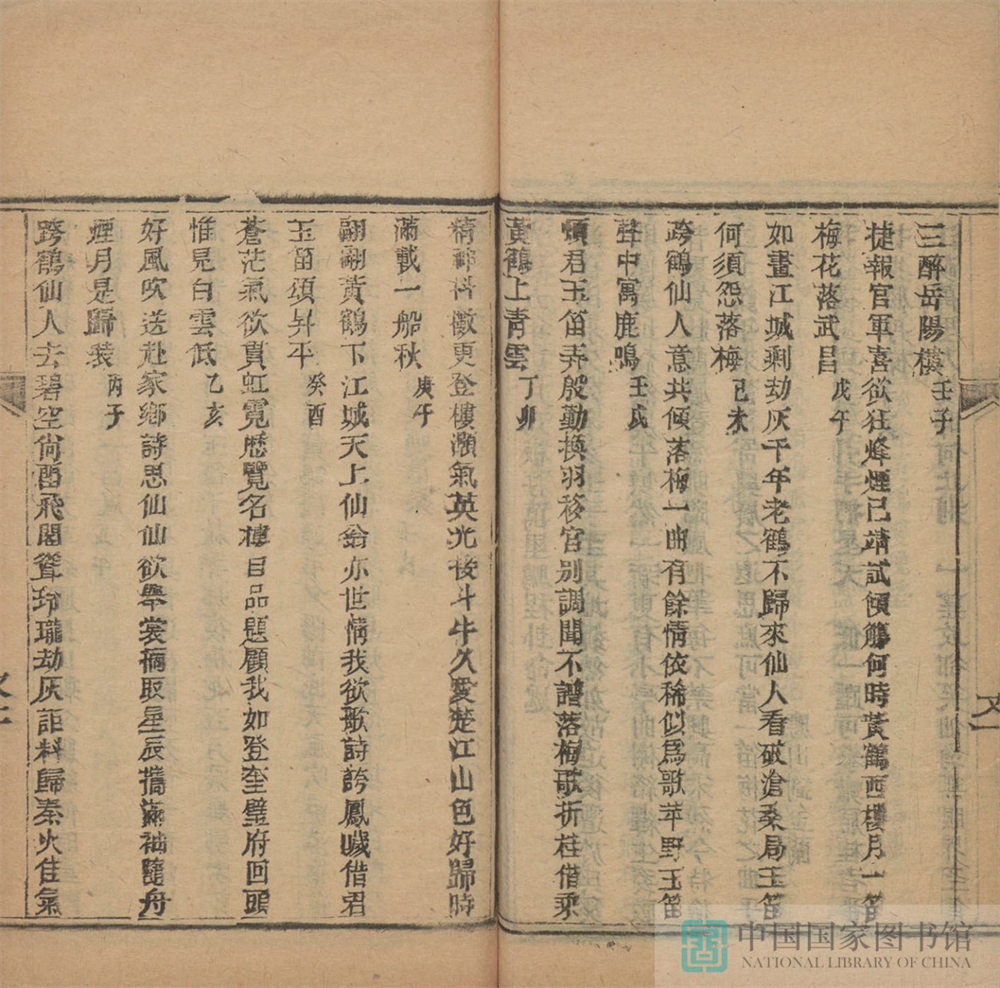 三醉岳陽樓壬子
捷報官軍喜欲狂烽煙已靖試傾觴何時黃鶴西樓月一笛
梅花落武昌戊午
如畫江城剩劫灰千年老鶴不歸來仙人看破滄桑局玉笛
何須怨落梅己未
跨鶴仙人意共傾落梅一曲有餘情依稀似為歌苹野玉笛
聲中寓鹿鳴壬戌
煩君玉笛弄殷勤換羽移宮別調聞不譜落梅歌折桂借乘
黃鶴上青雲丁卯
精神抖擻更登樓灝氣英光後斗牛久愛楚江山色好歸時
滿載一船秋庚午
翩翩黃鶴下江城天上仙翁亦世情我欲歌詩誇鳳噦借君
玉笛頌昇平癸酉
蒼茫氣欲貫虹霓歷覽名樓目品題顧我如登奎璧府回頭
惟見白雲低乙亥
好風吹送赴家鄉詩思仙仙欲舉裳摘取星辰攜滿袖隨舟
煙月是歸裝丙子
跨鶴仙人去碧空尚留飛閣聳玲瓏劫灰詎料歸秦火佳氣
中国国家图书馆
NATIONAL LIBRARY OF CHINA